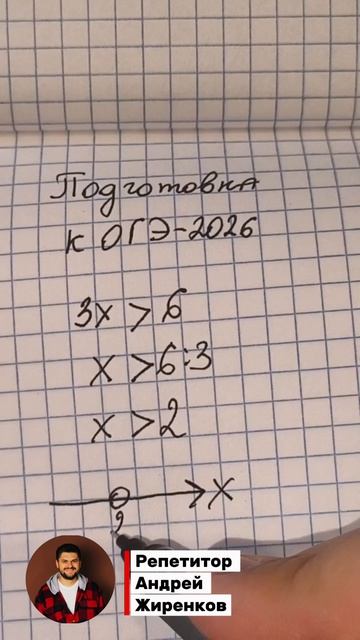 Подготовка
к ОГЭ-2026
3x > 6
x > 6:3
x > 2
x
Репетитор
Андрей
Жиренков